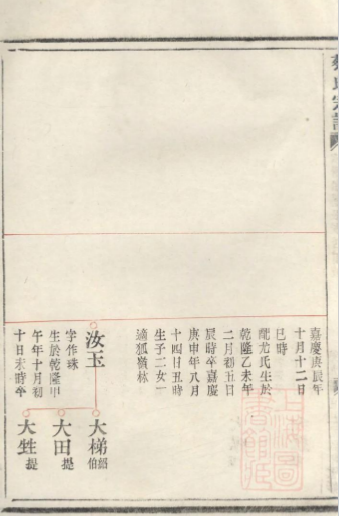 嘉慶庚辰年
十月十二日
巳時
配尤氏生於
乾隆乙未年
二月初五日
辰時卒嘉慶
庚申年八月
十四日丑時
生子二女一
適狐嶺林
汝玉
字作珠
生於乾隆甲
午年十月初
十日未時卒
大梯
伯
大田
提
大甡
提